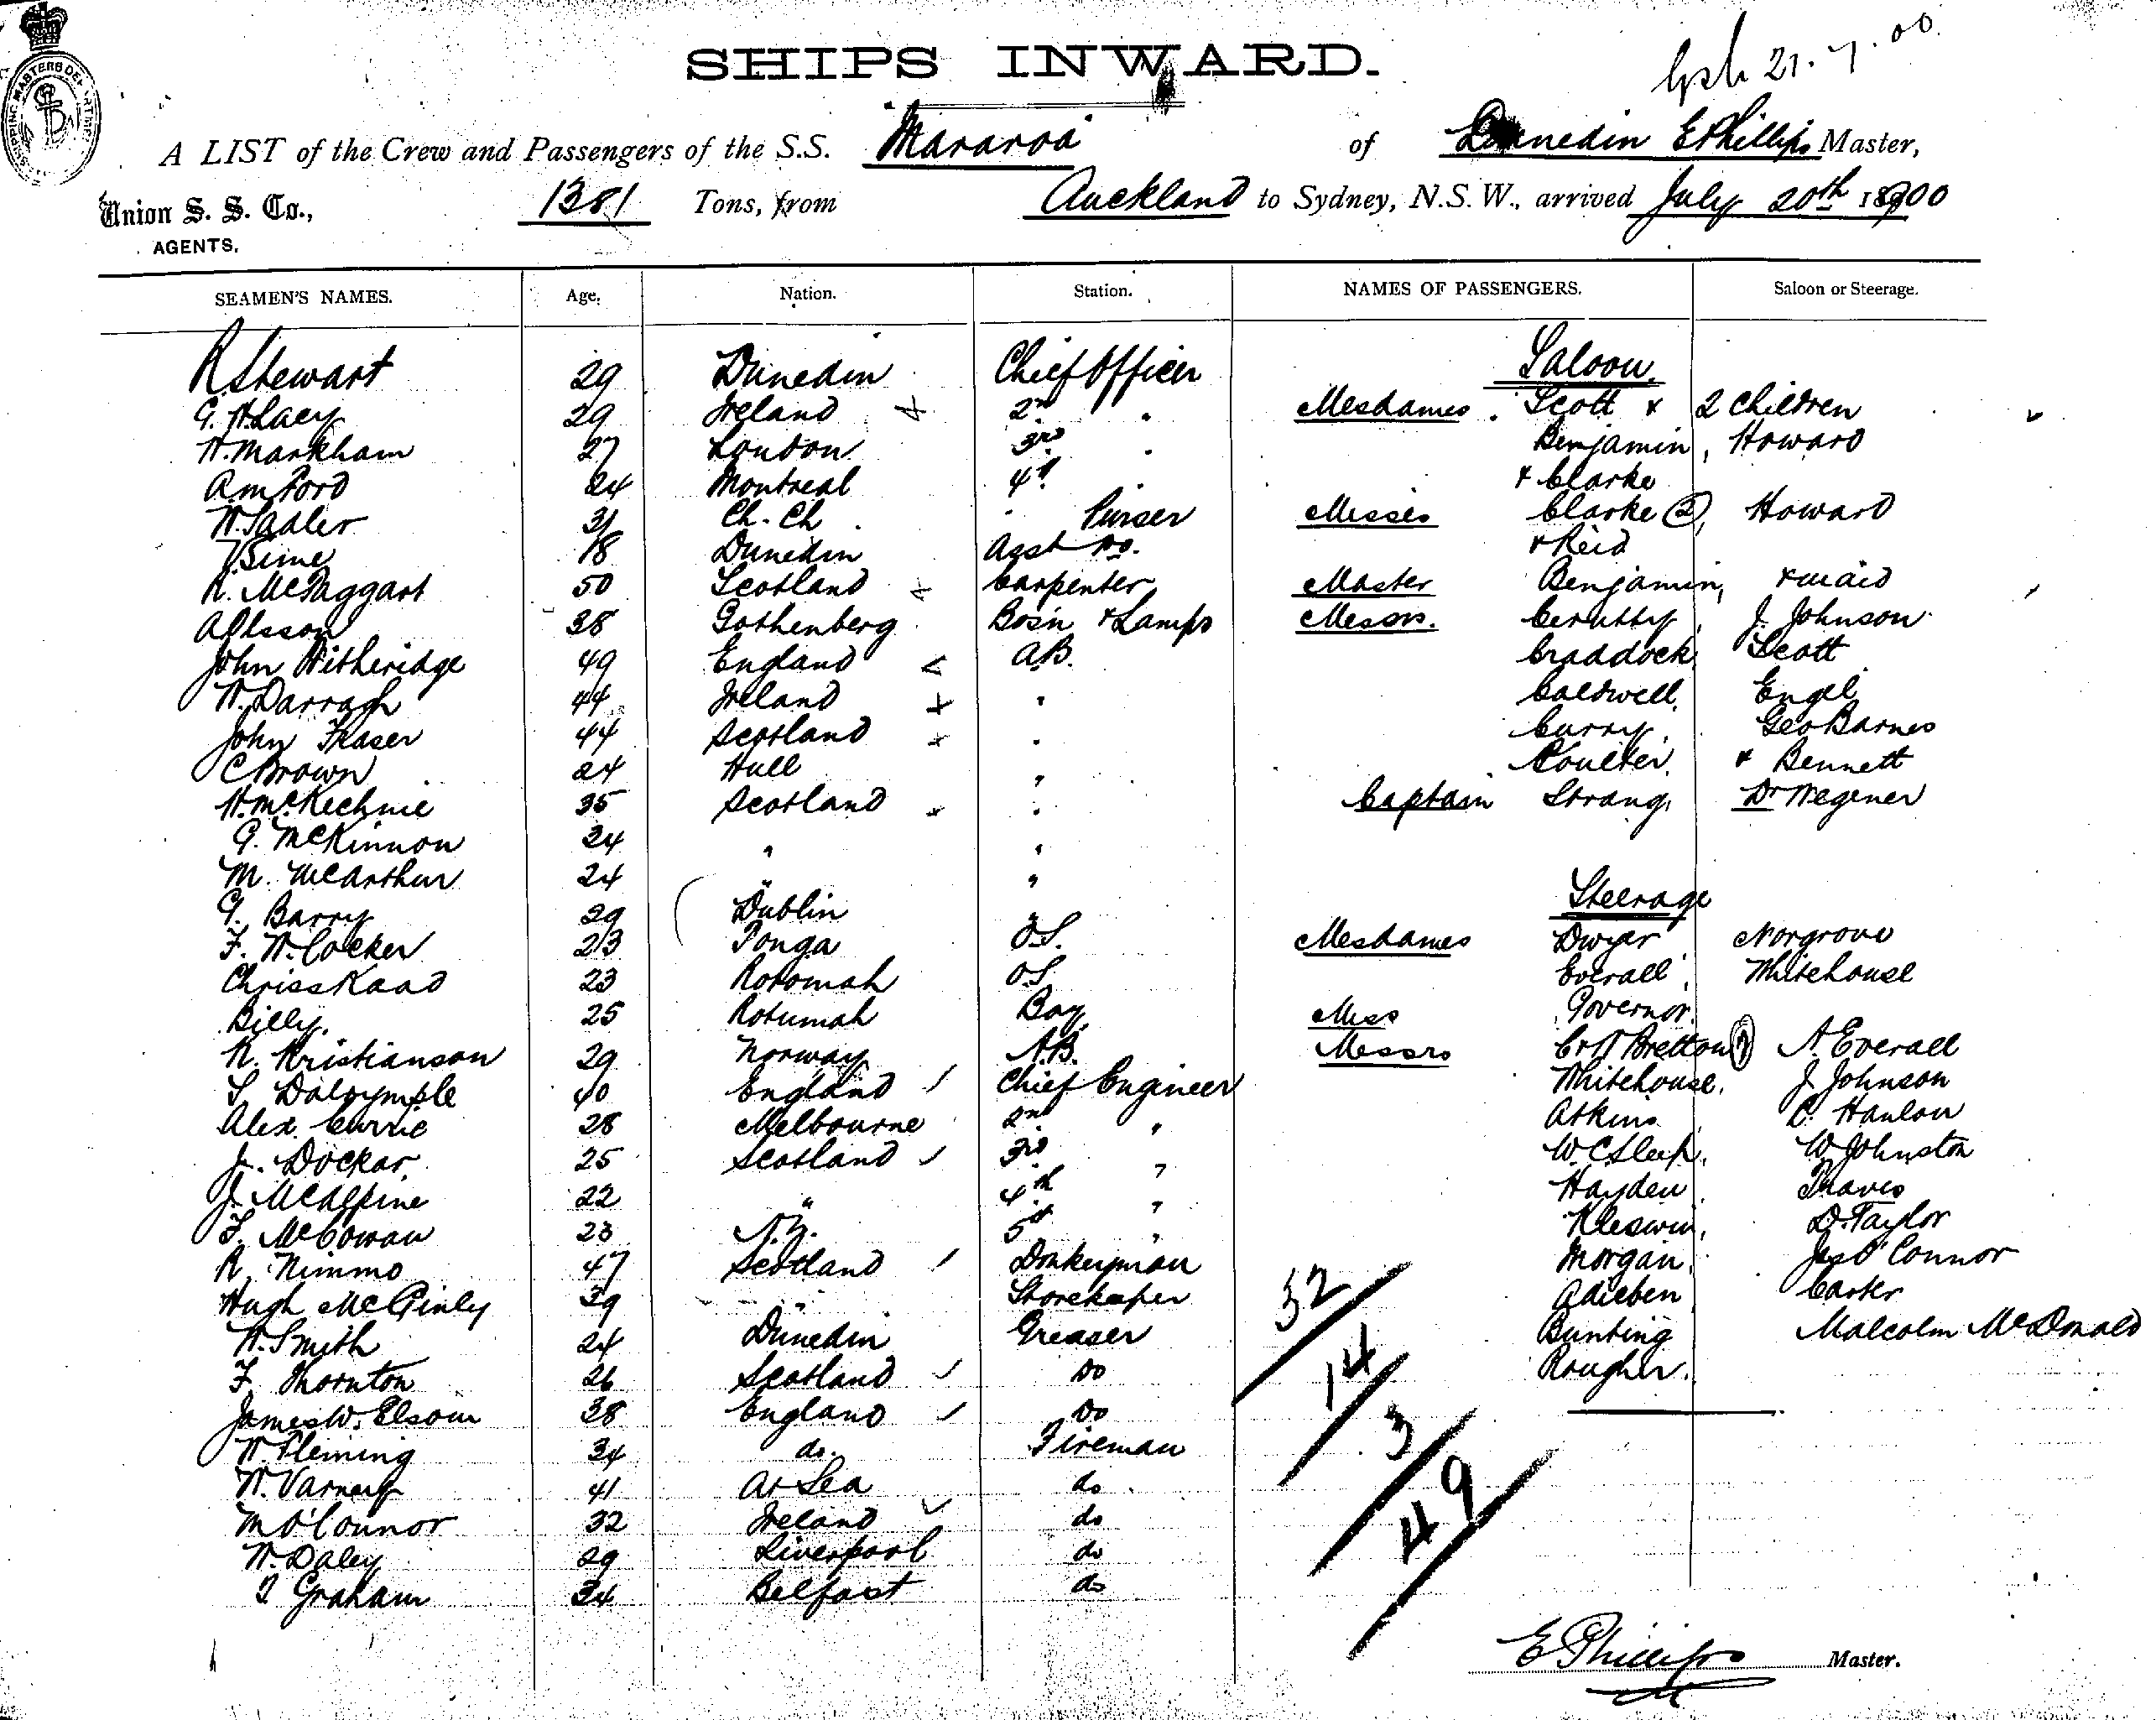 SHIPS INWARD.
21.7.00
A LIST of the Crew and Passengers of the S.S. Mararoa of Dunedin E Phillips Master,
Union S. S. Co., 1381 Tons, from Auckland to Sydney, N.S.W., arrived July 20th 1900
AGENTS.
SEAMEN'S NAMES. Age. Nation. Station. NAMES OF PASSENGERS. Saloon or Steerage.
R Stewart 29 Dunedin Chief Officer Saloon.
G. H. Lacy 29 Ireland 2nd " Mesdames Scott & 2 Children
W. Markham 27 London 3rd " Benjamin, Howard
A M Ford 24 Montreal 4th " & Clarke
W. Sadler 31 Ch. Ch Purser Misses Clarke (2), Howard
J. Sime 18 Dunedin Asst Do. & Reid
R. McTaggart 50 Scotland Carpenter Master Benjamin, & maid
A Olsson 38 Gothenberg Bosn & Lamps Messrs. Cerutty, J. Johnson
John Witheridge 49 England A.B. Craddock Scott
W. Darragh 44 Ireland " Caldwell, Engel
John Fraser 44 Scotland " Curry, Geo Barnes
C Brown 24 Hull " Coulter, & Bennett
H. McKechnie 35 Scotland " Captain Strang, Dr Wegener
G. McKinnon 24 " "
M. McArthur 24 " "
G. Barry 29 Dublin " Steerage
F. W. Cocker 23 Tonga O.S. Mesdames Dwyer Norgrove
Chriss Kaad 23 Rotomah O.S. Everall, Whitehouse
Billy. 25 Rotumah Boy Miss Governor.
K. Kristianson 29 Norway A.B. Messrs Bretton A. Everall
S. Dalrymple 40 England Chief Engineer Whitehouse, J. Johnson
Alex. Currie 28 Melbourne 2nd " Atkins C. Hanlon
J. Dockar 25 Scotland 3rd " W C Sleep, W Johnston
J. McAlpine 22 " 4th " Hayden Travis
F. McCowan 23 N.Z. 5th " D. Taylor
R. Nimmo 47 Scotland Donkeyman Morgan, Jas O'Connor
Hugh McGinly 39 " Storekeeper Carter
W. Smith 24 Dunedin Greaser Bunting Malcolm McDonald
F. Thornton 26 Scotland Do
James W. Elsom 38 England Do
W. Fleming 34 do. Fireman
W. Varney 41 At Sea do
M O'Connor 32 Ireland do
W. Daley 29 Liverpool do
Graham 34 Belfast do
32
14
3
49
E Phillips Master.